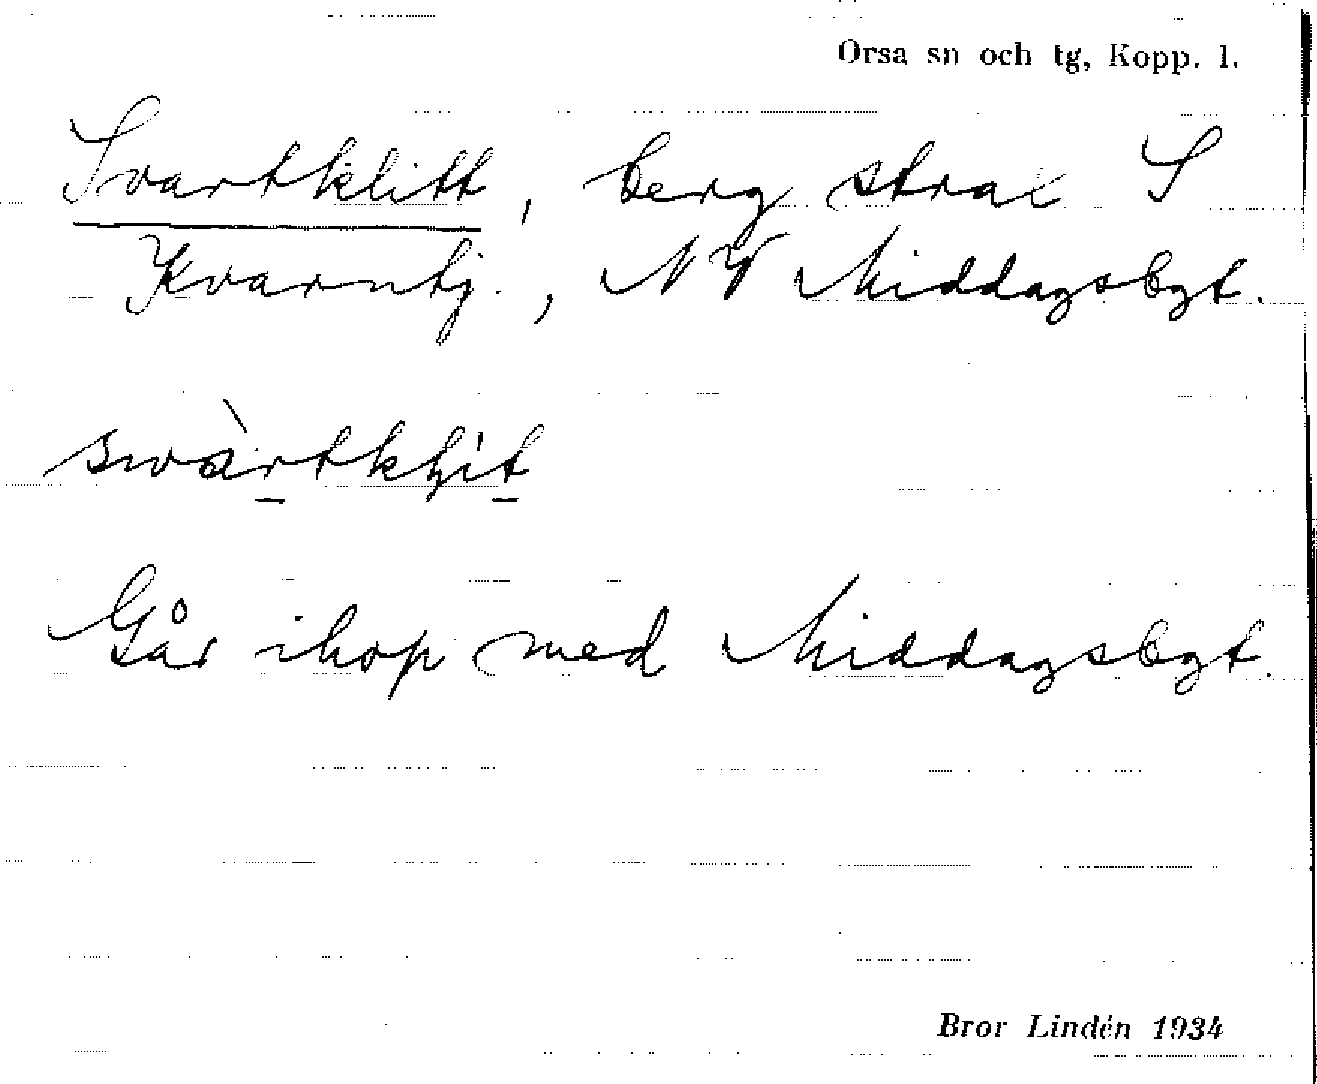 Orsa sn och tg, Kopp. l.
Svartklitt, berg strax S
Kvarntj., NV Middagsbgt.
swàrtkļit
Går ihop med Middagsbgt.
Bror Lindén 1934